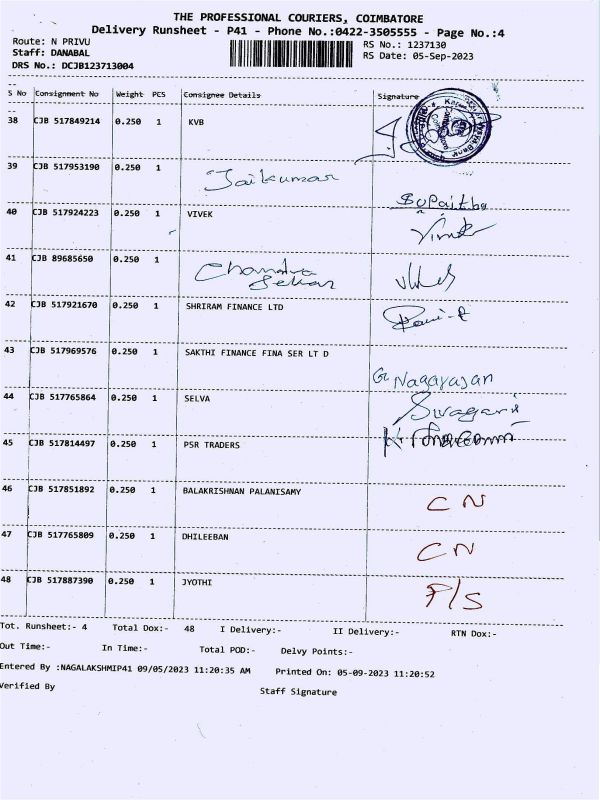 THE PROFESSIONAL COURIERS, COIMBATORE
Delivery Runsheet - P41 - Phone No.:0422-3505555 - Page No.:4
Route: N PRIVU
RS No.: 1237130
Staff: DANABAL
RS Date: 05-Sep-2023
DRS No.: DCJB123713004
S No Consignment No Weight PCS Consignee Details Signature
38 CJB 517849214 0.250 1 KVB
39 CJB 517953190 0.250 1 Jaikumar
40 CJB 517924223 0.250 1 VIVEK
41 CJB 89685650 0.250 1 Chandra Sekar
42 CJB 517921670 0.250 1 SHRIRAM FINANCE LTD
43 CJB 517969576 0.250 1 SAKTHI FINANCE FINA SER LT D
G Nagarajan
44 CJB 517765864 0.250 1 SELVA
45 CJB 517814497 0.250 1 PSR TRADERS
46 CJB 517851892 0.250 1 BALAKRISHNAN PALANISAMY CN
47 CJB 517765809 0.250 1 DHILEEBAN CN
48 CJB 517887390 0.250 1 JYOTHI P/S
Tot. Runsheet:- 4 Total Dox:- 48 I Delivery:- II Delivery:- RTN Dox:-
Out Time:- In Time:- Total POD:- Delvy Points:-
Entered By :NAGALAKSHMIP41 09/05/2023 11:20:35 AM Printed On: 05-09-2023 11:20:52
Verified By Staff Signature